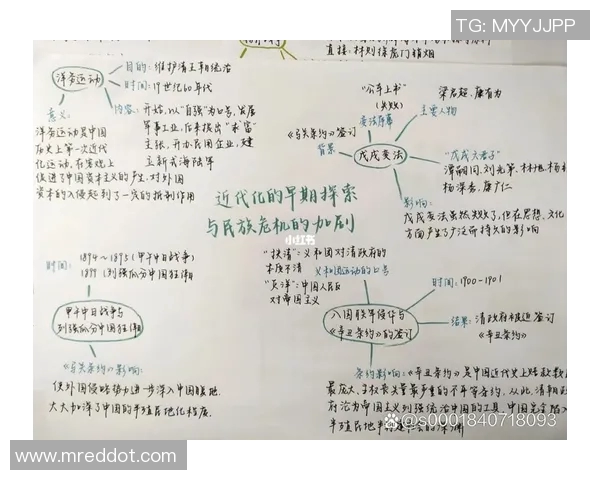 TG: MYYJJPP
直接:林则徐虎门销烟
洋务运动
目的:维护清王朝统治
时间:19世纪60年代
内容:开始,以"自强"为口号,发展
军事工业,后来提出"求富"
主张,开办民用企业,建
立新式海陆军
意义:
洋务运动是中国
历史上第一次近代
化运动,在客观上
促进了中国资本主义的产生,对外国
资本的入侵起到了一定的抵制作用
"公车上书"
(失败)
变法序幕
梁启超、康有为
主要人物
《马关条约》签订
背景
戊戌变法
"戊戌六君子"
谭嗣同、刘光第、林旭、杨
杨深秀、康广仁
影响:
戊戌变法虽然失败了,但在思想、文化
方面产生了广泛而持久的影响
近代化的早期探索
与民族危机的加剧
小红书
时间:
1894~1895(甲午中日战争)
1899(列强瓜分中国狂潮)
甲午中日战争与
列强瓜分中国狂潮
《马关条约》影响:
使外国侵略势力进一步深入中国腹地.
大大加深了中国的半殖民地化程度.
"扶清":义和团对清政府的
本质不清
"灭洋":中国人民反
对帝国主义
义和团运动的口号
八国联军侵华与
《辛丑条约》的签订
时间:1900-1901
结果:清政府被迫签订
《辛丑条约》
条约影响:《辛丑条约》是中国近代史上赔款数
最庞大、主权丧失最严重的不平等条约,从此,清朝
府沦为帝国主义列强统治中国的工具.中国完全陷入
半殖民地半封建社会的深渊
@s0001840718093
www.mreddot.com